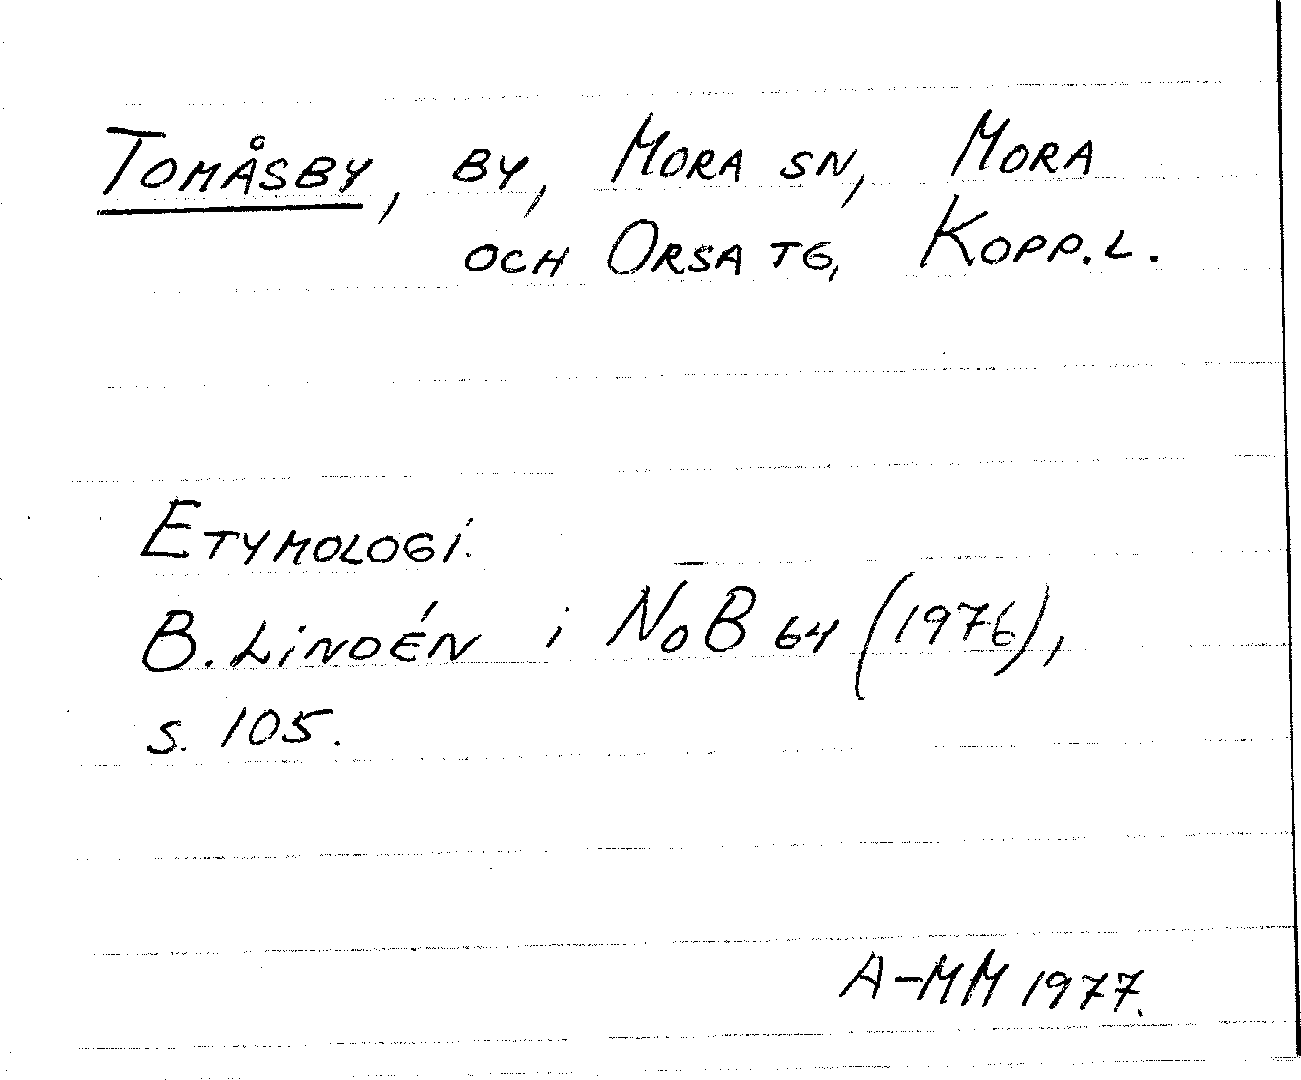 TOMÅSBY, BY, MORA SN, MORA
OCH ORSA TG, KOPP.L.
ETYMOLOGI.
B. LINDÉN i NoB 64 (1976),
S. 105.
A-MM 1977.